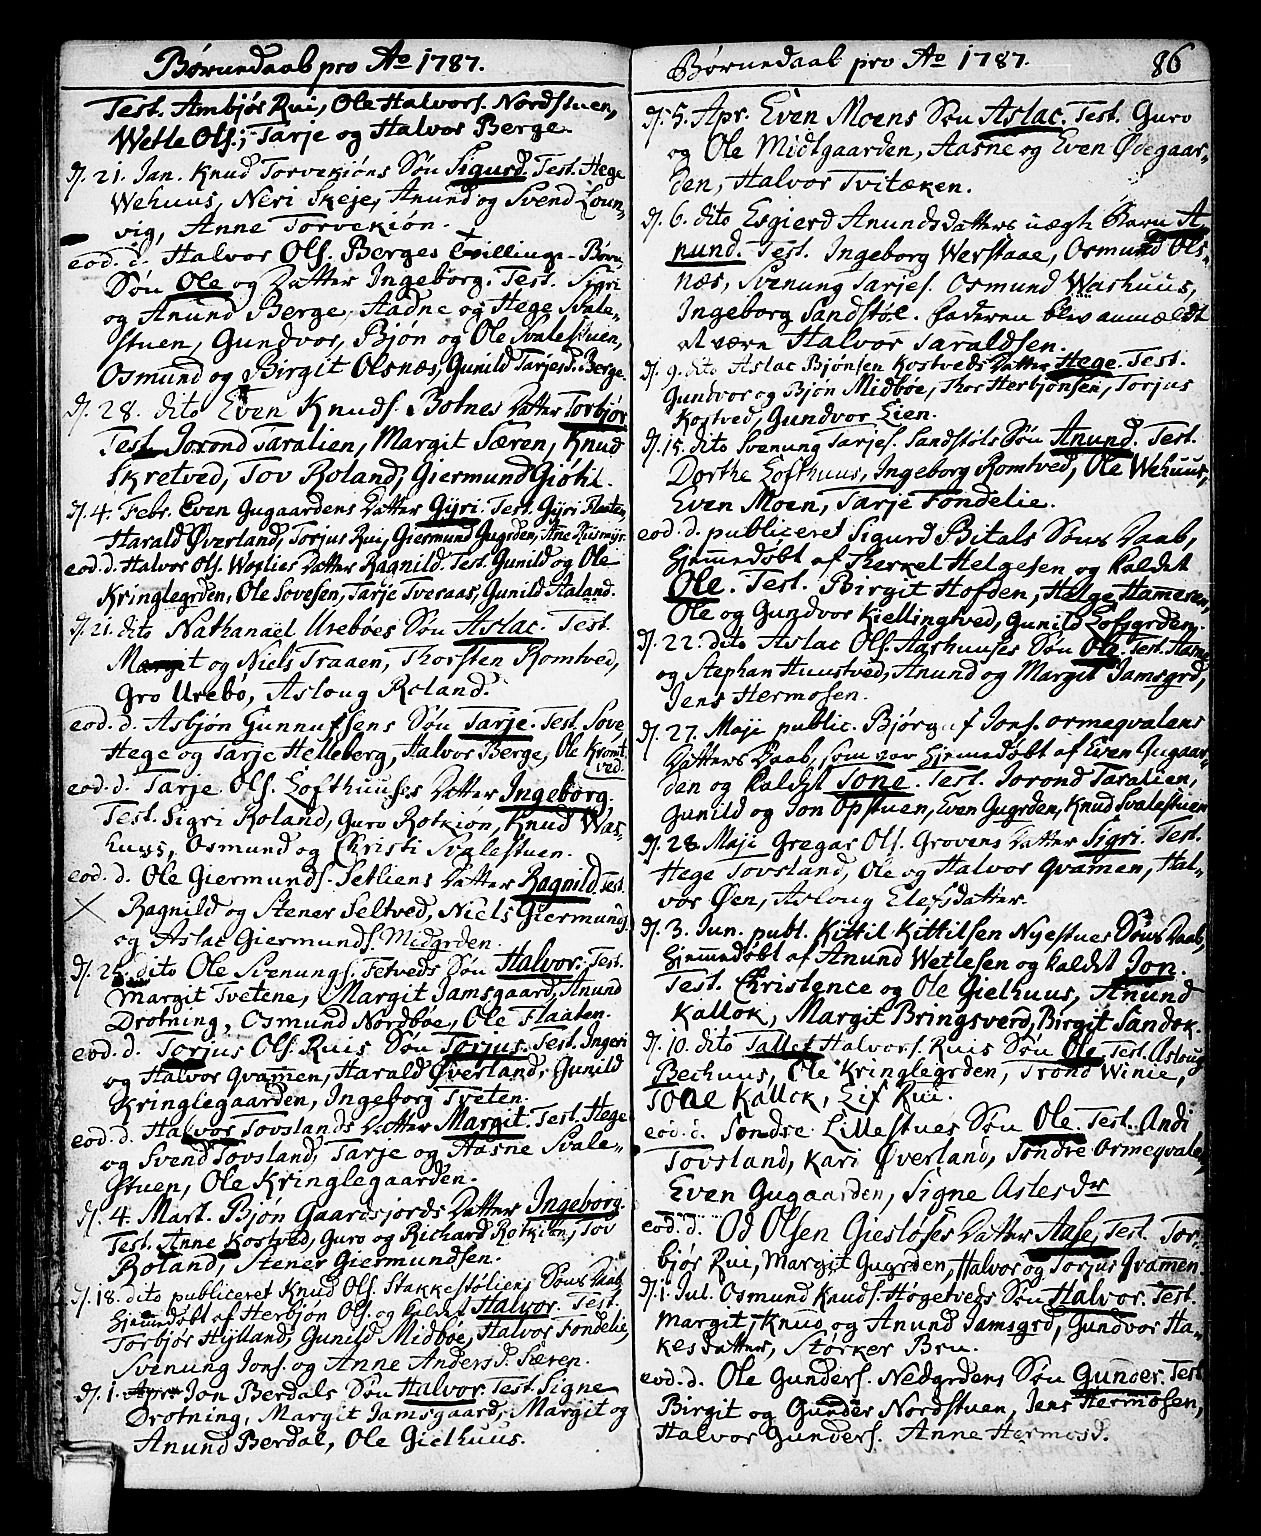 Børnedaab pro Ao 1787.
Test. Ambjør Rui, Ole Halvors. Nordstuen,
Wetle Ols., Tarje og Halvor Berge.
d. 21. Jan. Knud Torvekiøns Søn Sigurd. Test. Hege
Wehuus, Neri Skeje, Anund og Svend Loun-
vig, Anne Torvekiøn.
eod. d. Halvor Ols. Berges Tvillinge-Børn,
Søn Ole og Datter Ingeborg. Test. Sigri
og Anund Berge, Aadne og Hege Svale-
stuen, Gundvor, Bjøn og Ole Svalestuen,
Osmund og Birgit Olsnæs, Gunild Tarjesd. Berge.
d. 28. dito Even Knuds. Botnes Datter Torbjør
Test. Jorond Taralien, Margit Særen, Knud
Skretved, Tov Roland, Giermund Giøtil.
d. 4. Febr. Even Gugaardens Datter Gÿri. Test. Gÿri Flaaten,
Harald Øverland, Torjus Rui, Giermund Gugrden, Ane Rismÿr.
eod. d. Halvor Ols. Woslies Datter Ragnild. Test. Gunild og Ole
Kringlegrden, Ole Sovesen, Tarje Tveraas, Gunild Haland.
d. 21. dito Nathanaël Urebøes Søn Aslac. Test.
Margit og Niels Traaen, Thorsten Romtved,
Gro Urebø, Asloug Roland.
eod. d. Asbjøn Gunnufsens Søn Tarje. Test. Sove,
Hege og Tarje Helleberg, Halvor Berge, Ole Kromt
ved.
eod. d. Tarje Ols. Lofthuuses Datter Ingeborg.
Test. Sigri Roland, Guro Rotkiøn, Knud Was-
huus, Osmund og Christi Svalestuen.
eod. d. Ole Giermunds. Setliens Datter Ragnild. Test.
Ragnild og Stener Seltved, Niels Giermunds.
og Aslac Giermunds. Midgrden.
d. 25. dito Ole Svenungs. Fetveds Søn Halvor. Test.
Margit Tvetene, Margit Jamsgaard, Anund
Drotning, Osmund Nordbøe, Ole Flaaten.
eod. d. Torjus Ols. Ruis Søn Torjus. Test. Ingeri
og Halvor Qvamen, Harald Øverland, Gunild
Kringlegaarden, Ingeborg Tveten.
eod. d. Halvor Tovslands Datter Margit. Test. Hege
og Svend Tovsland, Tarje og Aasne Svale-
stuen, Ole Kringlegaarden.
d. 4. Mart. Bjøn Gaardsjords Datter Ingeborg.
Test. Anne Kostved, Guro og Richard Rotkiøn, Tov
Roland, Stener Giermundsen.
d. 18. dito publiceret Knud Ols. Stakkestøliens Søns Daab,
hjemmedøbt af Herbjøn Ols. og kaldet Halvor. Test.
Torbjør Hylland, Gunild Midbøe, Halvor Fondelie,
Svenung Jons. og Anne Andersd. Særen.
d. 1. Apr. Jon Berdals Søn Halvor. Test. Signe
Drotning, Margit Jamsgaard, Margit og
Anund Berdal, Ole Gielhuus.
Børnedaab pro Ao 1787. 86
d. 5. Apr. Even Moens Søn Aslac. Test. Guro
og Ole Midtgaarden, Aasne og Even Ødegaar-
den, Halvor Tvitæken.
d. 6. dito Esgierd Anundsdatters uægte Barn A
nund. Test. Ingeborg Werstaae, Osmund Ols-
næs, Svenung Tarjes. Osmund Washuus,
Ingeborg Sandstøl. Faderen blev anmældt
at være Halvor Taraldsen.
d. 9. dito Aslac Bjønsen Kostveds Datter Hege. Test.
Gundvor og Bjøn Midbøe, Thor Herbjønsen, Torjus
Kostved, Gundvor Lien.
d. 15. dito Svenung Tarjes. Sandstøls Søn Anund. Test.
Dorthe Lofthuus, Ingeborg Romtved, Ole Wehuus,
Even Moen, Tarje Fondelie.
eod. d. publiceret Sigurd Bitals Søns Daab,
hjemmedøbt af Therkel Helgesen og kaldet
Ole. Test. Birgit Hofden, Helge Hameren,
Ole og Gundvor Kiellingtved, Gunild Lofsgrden.
d. 22. dito Aslac Ols. Aashuuses Søn Ole. Test.
og Stephan Huustved, Anund og Margit Jamsgrd,
Jens Hermosen.
d. 27. Maji public. Bjørguf Jons. Ormeqvalens
Datters Daab, som var hjemmedøbt af Even Gugaar-
den og kaldet Tone. Test. Jorond Taralien,
Gunild og Jon Opstuen, Even Gugrden, Knud Svalestuen
d. 28 Maji Gregar Ols. Grovens Datter Sigri. Test.
Hege Tovsland, Ole og Halvor Qvamen, Hal-
vor Øen, Asloug Elefsdatter.
d. 3. Jun. publ. Kittil Kittilsen Nyestues Søns Daab,
hjemmedøbt af Anund Wetlesen og kaldet Jon.
Test. Christence og Ole Gielhuus, Anund
Kallok, Margit Bringsverd, Birgit Sandok.
d. 10. dito Tallef Halvors. Ruis Søn Ole. Test. Asloug
Bechuus, Ole Kringlegrden, Trond Winie,
Tone Kallok, Lif Rui.
eod. d. Sondre Lillestues Søn Ole. Test. Andi
Tovsland, Kari Øverland, Sondre Ormeqvale,
Even Gugaarden, Signe Aslesdr
eod. d. Od Olsen Giesløses Datter Aase. Test. Tor-
bjør Rui, Margit Gugrden, Halvor og Torjus Qvamen.
d. 1. Jul. Osmund Knuds. Høgetveds Søn Halvor. Test.
Margit, Knud og Anund Jamsgrd, Gundvor Ha-
kesdatter, Størker Bru.
eod. d. Ole Gunders. Nedgrdens Søn Gunder. Test.
Birgit og Gunder Nordstuen, Jens Hermosen,
Halvor Gunders. Anne Hermosd.